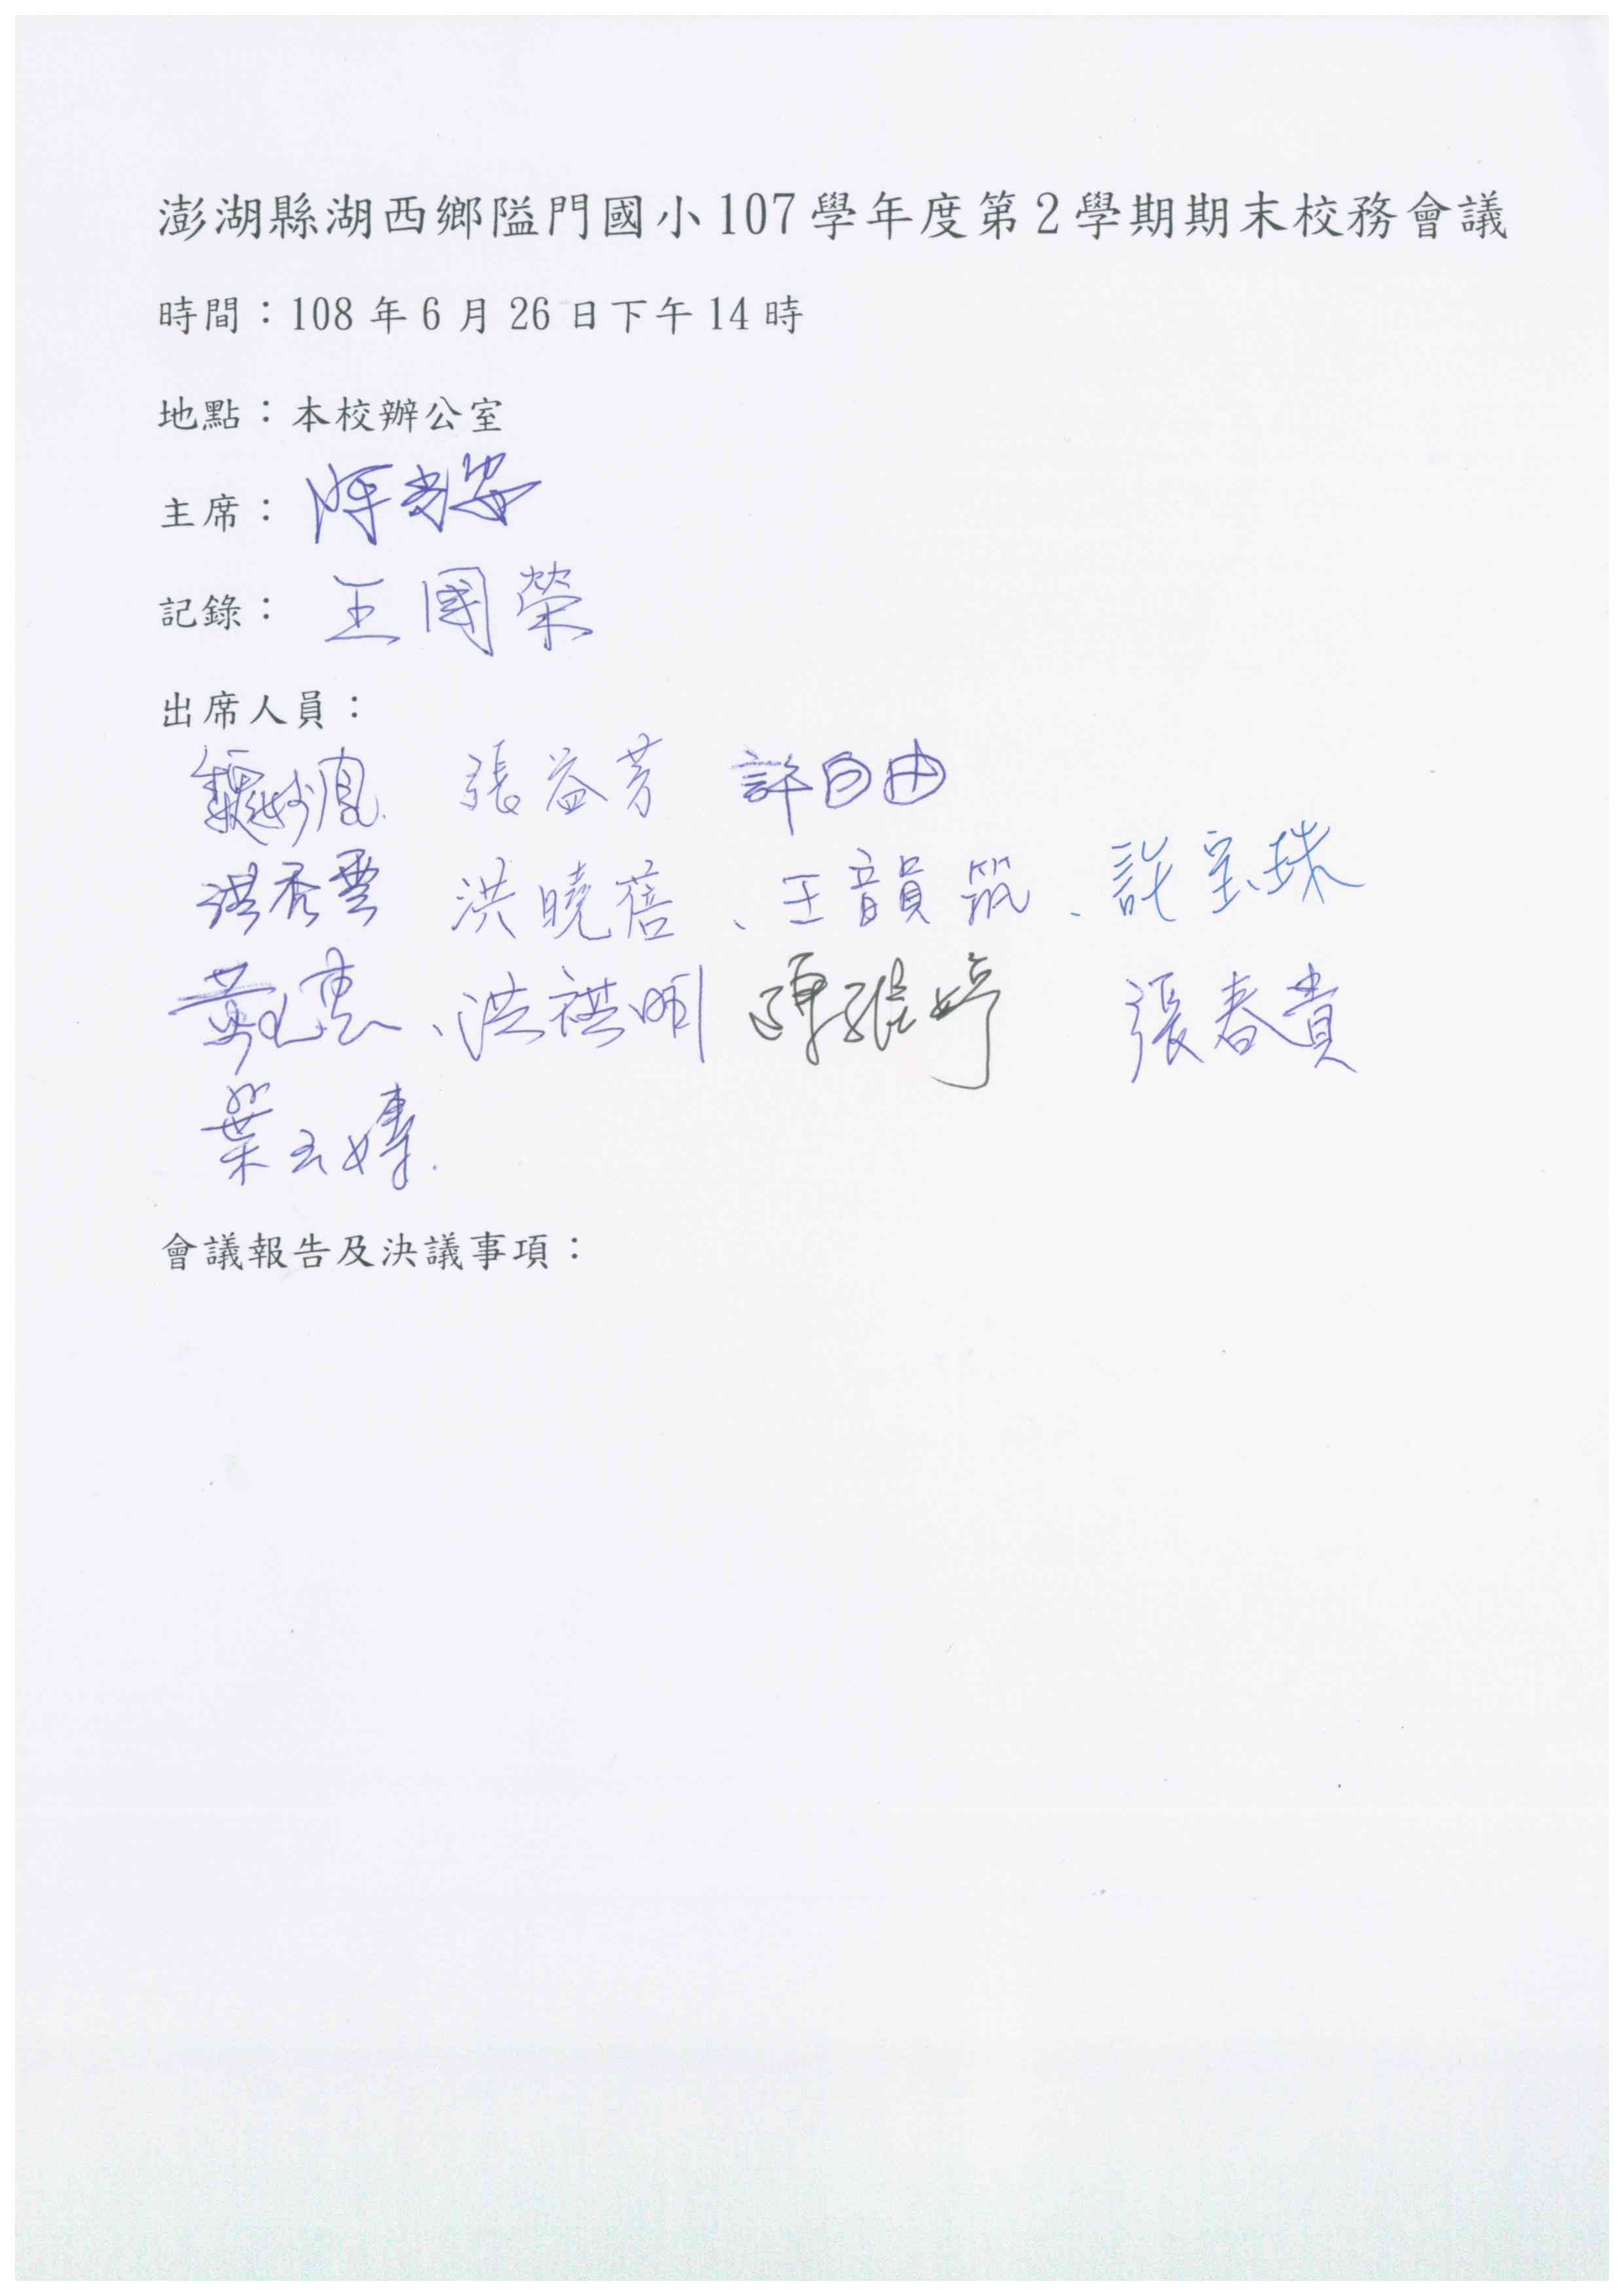 澎湖縣湖西鄉隘門國小107學年度第2學期期末校務會議
時間：108年6月26日下午14時
地點：本校辦公室
主席：陳
記錄：王國榮
出席人員：
魏妙 張益芳 許自由
洪秀雲 洪曉蓓、王韻筑、許宝珠
黃 、洪祺明 陳雅婷 張春貴
葉云
會議報告及決議事項：